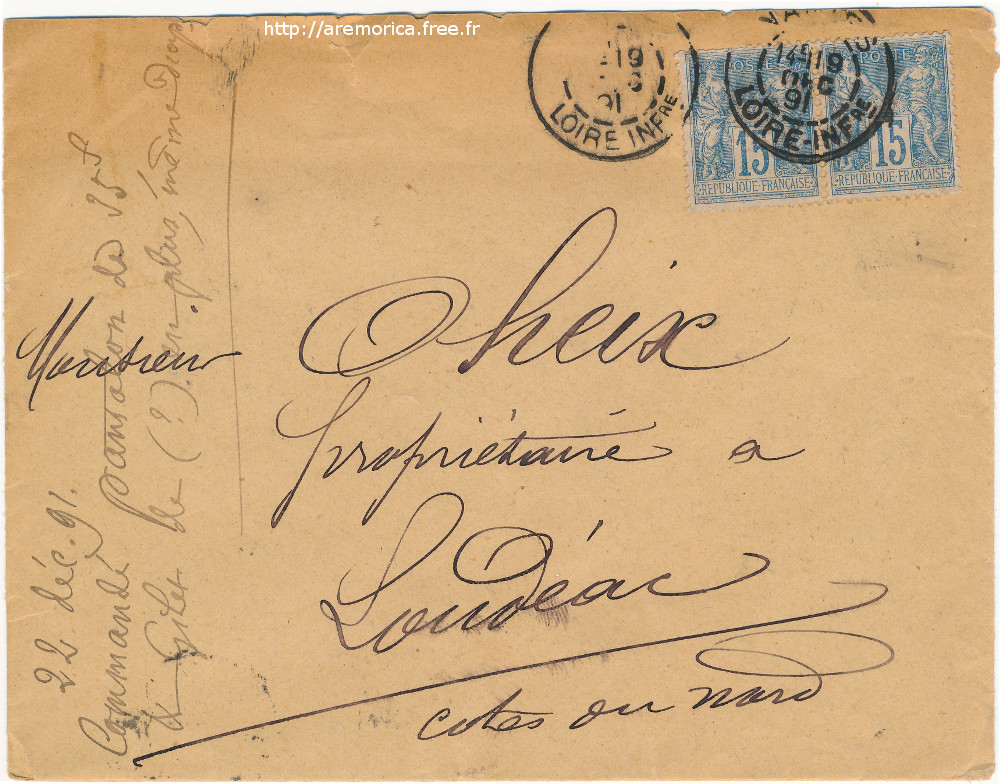 http://aremorica.free.fr
19
91
LOIRE INFRE
19
DEC
91
LOIRE-INFRE
15
REPUBLIQUE FRANCAISE
15
REPUBLIQUE FRANCAISE
Monsieur Oheix
propriétaire a
Loudéac
cotes du nord
22 déc. 91.
Commandé pantalon de 35f
& Gilet de (?) en plus, même drap